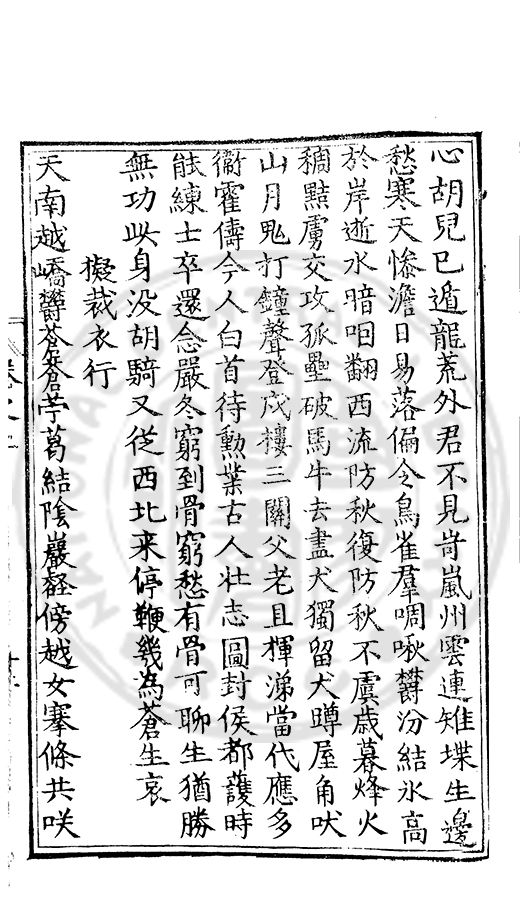 心胡兒已遁龍荒外君不見岢嵐州雲連雉堞生邊
愁寒天慘澹日易落偏令鳥雀羣啁啾欝汾結氷高
於岸逝水暗咽翻西流防秋復防秋不虞歲暮烽火
稠黠虜交攻孤壘破馬牛去盡犬獨留犬蹲屋角吠
山月鬼打鐘聲登戍樓三關父老且揮涕當代應多
衞霍儔今人白首待勲業古人壮志圖封侯都護時
能練士卒還念嚴冬窮到骨窮愁有骨可聊生猶勝
無功此身没胡騎又從西北来停鞭幾為蒼生哀
擬裁衣行
天南越嶠欝蒼蒼苧葛結陰巖壑傍越女搴條共咲